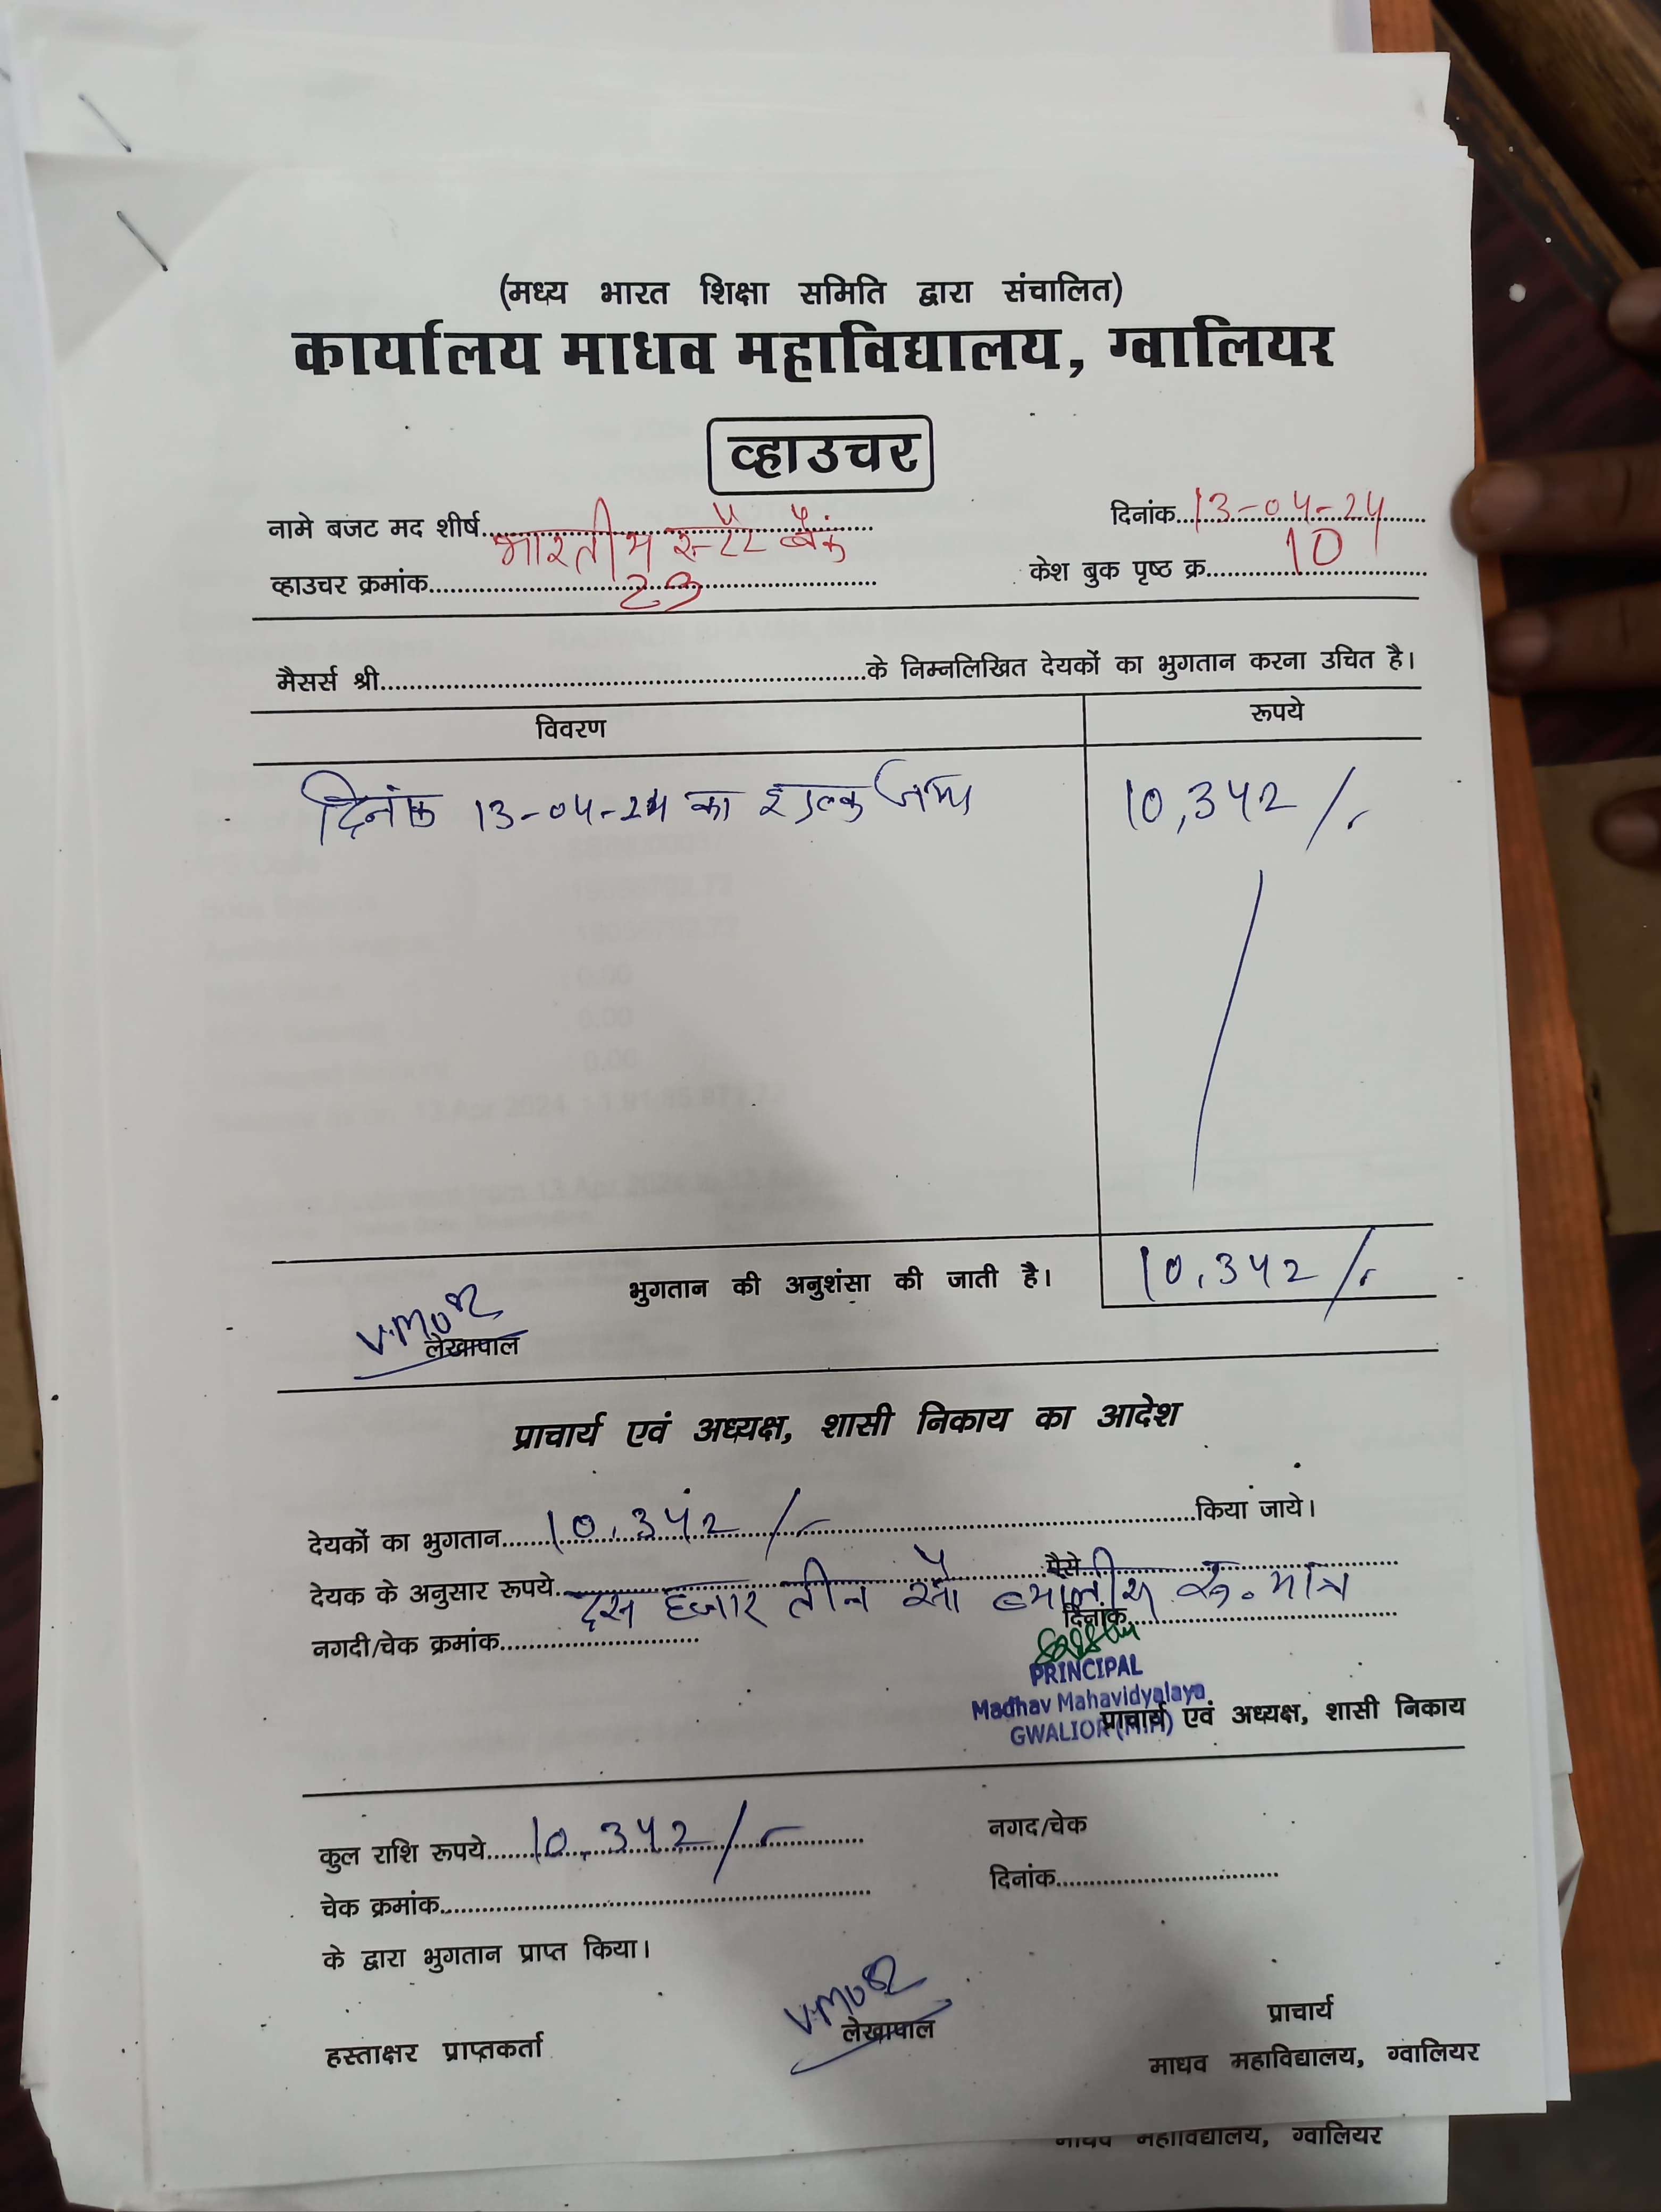 (मध्य भारत शिक्षा समिति द्वारा संचालित)
कार्यालय माधव महाविद्यालय, ग्वालियर
व्हाउचर
नामे बजट मद शीर्ष भारतीय स्टेट बैंक दिनांक 13-04-24
व्हाउचर क्रमांक 23 केश बुक पृष्ठ क्र. 10
मैसर्स श्री के निम्नलिखित देयकों का भुगतान करना उचित है।
विवरण रूपये
दिनांक 13-04-24 का शुल्क जमा 10,342/-
भुगतान की अनुशंसा की जाती है। 10,342/-
लेखापाल
प्राचार्य एवं अध्यक्ष, शासी निकाय का आदेश
देयकों का भुगतान 10,342/- किया जाये।
देयक के अनुसार रूपये दस हजार तीन सौ ब्यालीस रु. मात्र पैसे
नगदी/चेक क्रमांक दिनांक
PRINCIPAL
Madhav Mahavidyalaya
GWALIOR (M.P.)
प्राचार्य एवं अध्यक्ष, शासी निकाय
कुल राशि रूपये 10,342/- नगद/चेक
चेक क्रमांक दिनांक
के द्वारा भुगतान प्राप्त किया।
हस्ताक्षर प्राप्तकर्ता लेखापाल प्राचार्य
माधव महाविद्यालय, ग्वालियर
माधव महाविद्यालय, ग्वालियर